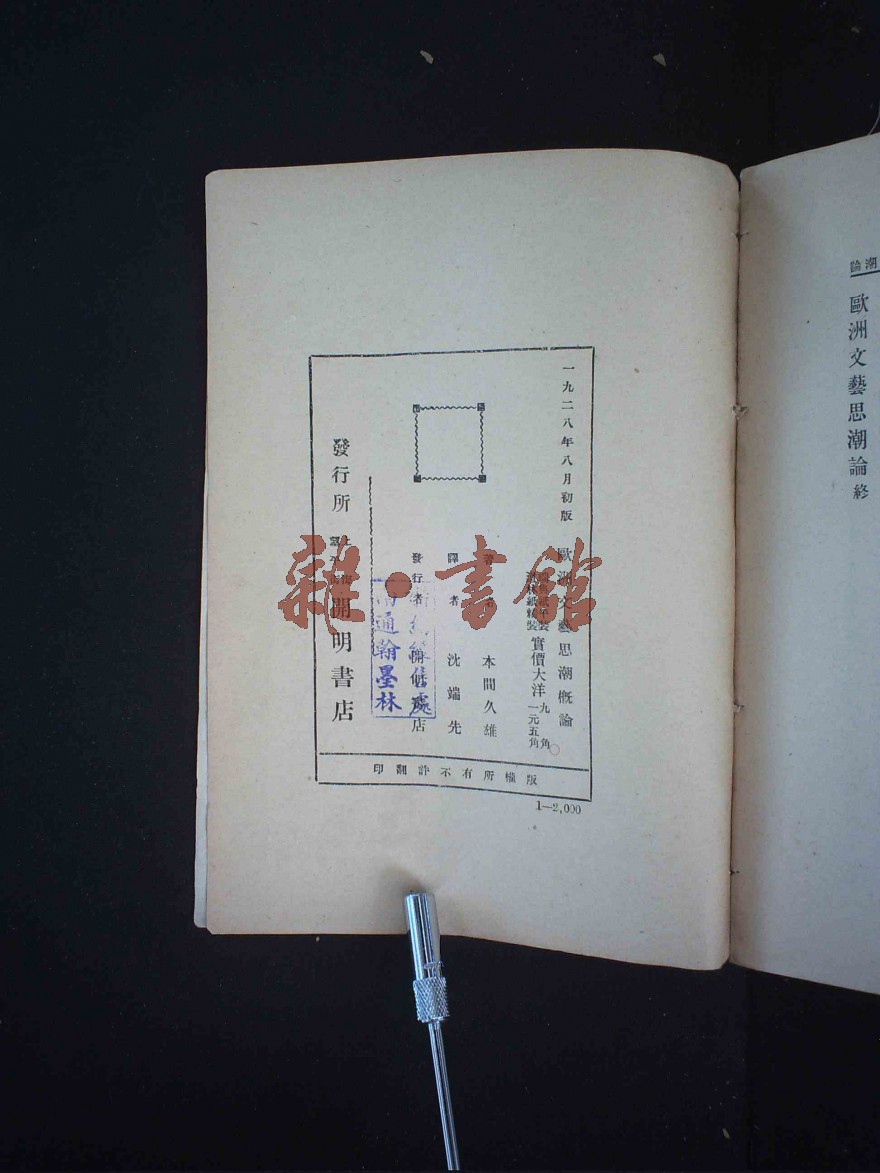 潮論
歐洲文藝思潮論終
一九二八年八月初版
歐洲文藝思潮概論
實價大洋
九角
一元五角
著者
本間久雄
譯者
沈端先
發行者
開明書店
發行所
上海
開明書店
南通翰墨林
版權所有不許翻印
1—2,000
雜·書館